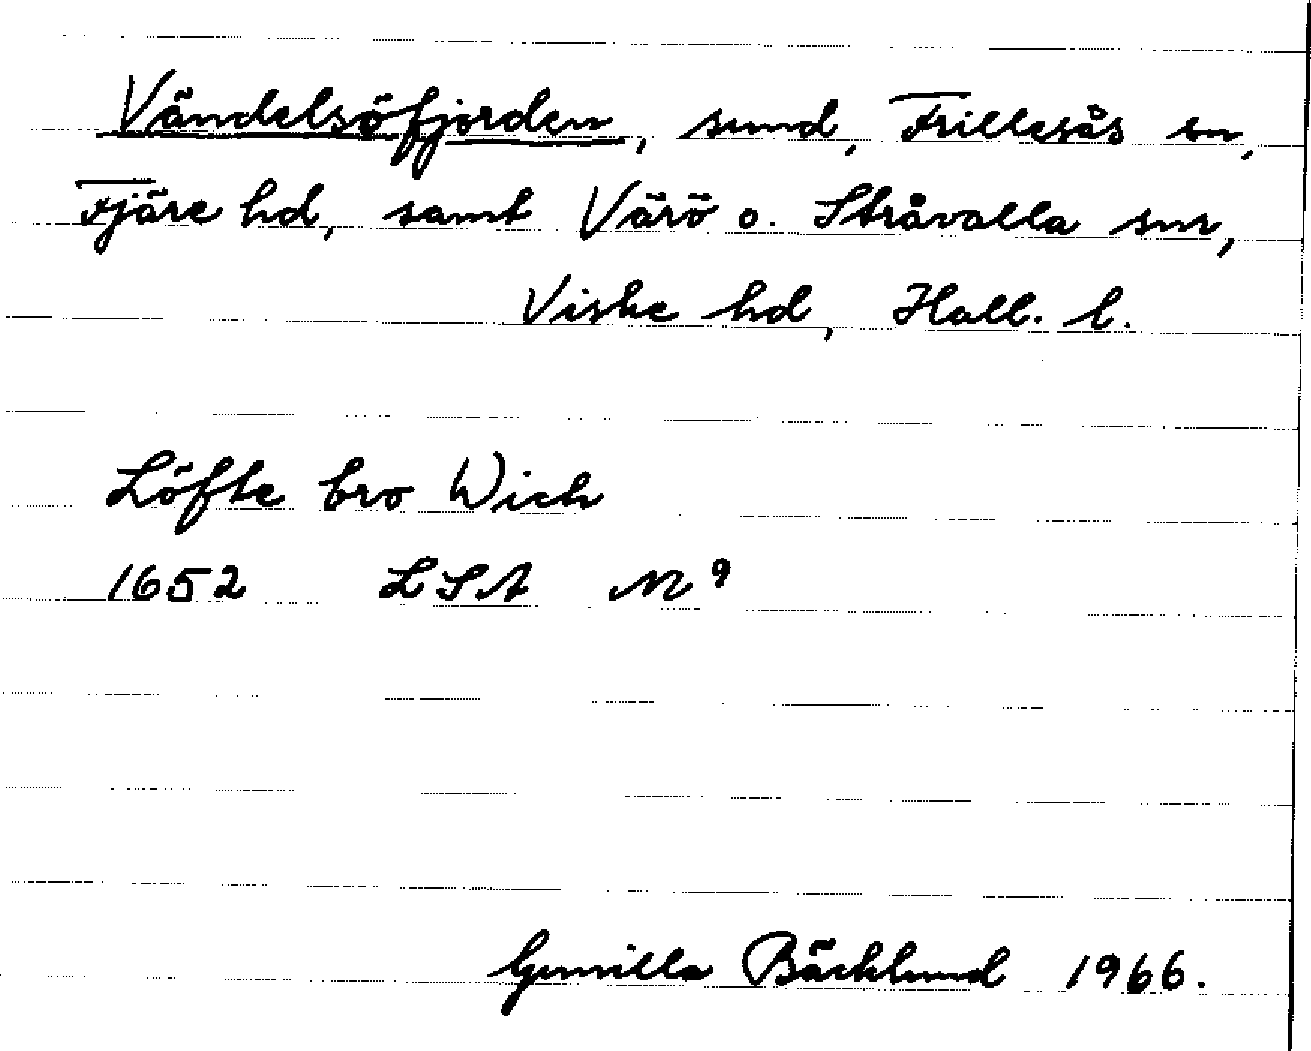 Vändelsöfjorden, sund, Frillesås sn,
Fjäre hd, samt Värö o. Stråvalla snr,
Viske hd, Hall. l.
Löfte bro Wich
1652 LSA N 9
Gunilla Bäcklund 1966.